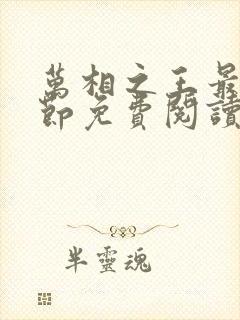 萬相之王最
節免費閱讀
半靈魂